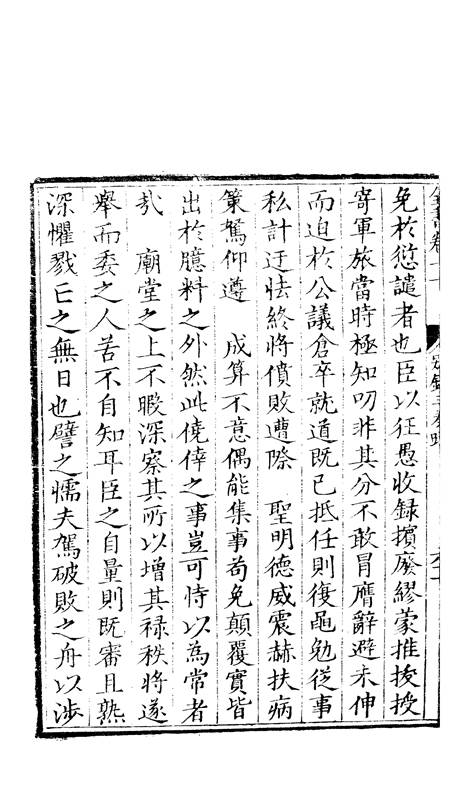 免於愆譴者也臣以狂愚收錄擯廢繆蒙推拔授
寄軍旅當時極知叨非其分不敢冒膺辭避未伸
而迫於公議倉卒就道既已抵任則復黽勉從事
私計迂怯終將僨敗遭際　聖明德威震赫扶病
策駑仰遵　成算不意偶能集事苟免顛覆實皆
出於臆料之外然此僥倖之事豈可恃以為常者
㢤　廟堂之上不暇深察其所以增其祿秩將遂
舉而委之人苦不自知耳臣之自量則既審且熟
深懼戮亡之無日也譬之懦夫駕破敗之舟以涉